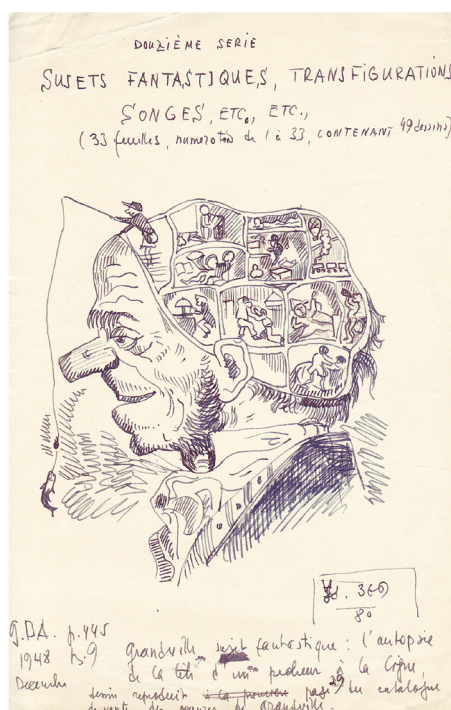 DOUZIÈME SERIE
SUJETS FANTASTIQUES, TRANSFIGURATIONS
SONGES, ETC., ETC.,
(33 feuilles, numerotés de 1 à 33, CONTENANT 49 dessins)
G.DA. p.445
1948 n.9
Decembre
80
Grandville sujet fantastique : l'autopsie
de la tête d'un pecheur à la ligne,
dessin reproduit à la page 29 du catalogue
de vente des oeuvres de Grandville.